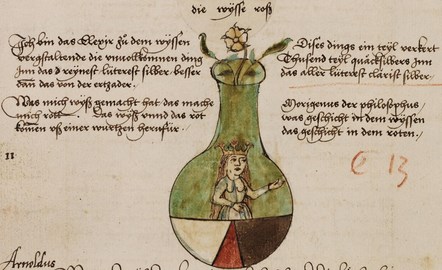 die wÿsse roß
Jch bin das Elexir zů dem wÿssen
vergstaltende die vnuolkomnen ding
Jnn das reÿnest luterest silber besser
dann das von der ertzader.
Was mich wÿß gemacht hat das mache
mich rott. Das wÿß vnnd das rot
komen vß einer wurtzen herufür.
Dises dings ein teÿl verkert
Thusend teÿl quäcksilbers Jnn
das aller luterest clarist silber.
Morigenus der philosophus,
was geschicht in dem wÿssen
das geschicht in dem roten.
11
C 13
Arnoldus